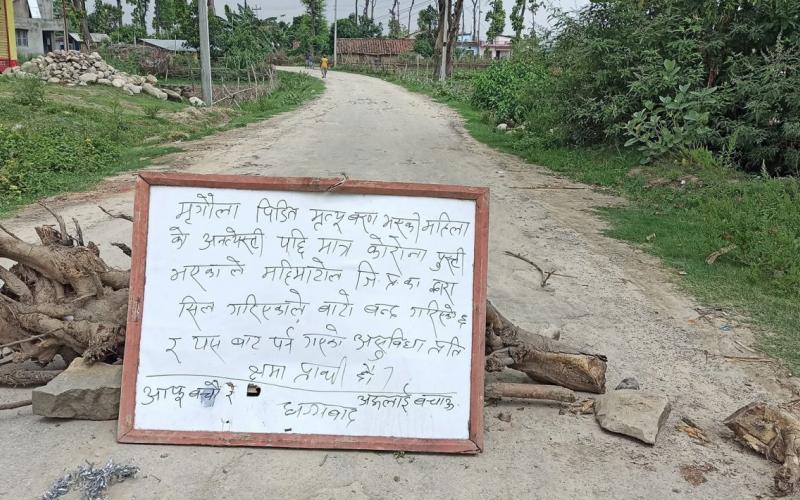 मृगौला पिडित मृत्यू वरण भएकी महिला
को अन्त्येस्टी पछि मात्र कोरोना पुस्टी
भएकाले महिमाटोल जि प्र का द्वारा
सिल गरिएकाले बाटो बन्द गरिएको छ
र यस बाट पर्न गएको असुविधा प्रति
क्षमा प्रार्थी छौ ।
आफू बचौ र अरूलाई बचाऊ
धन्यवाद